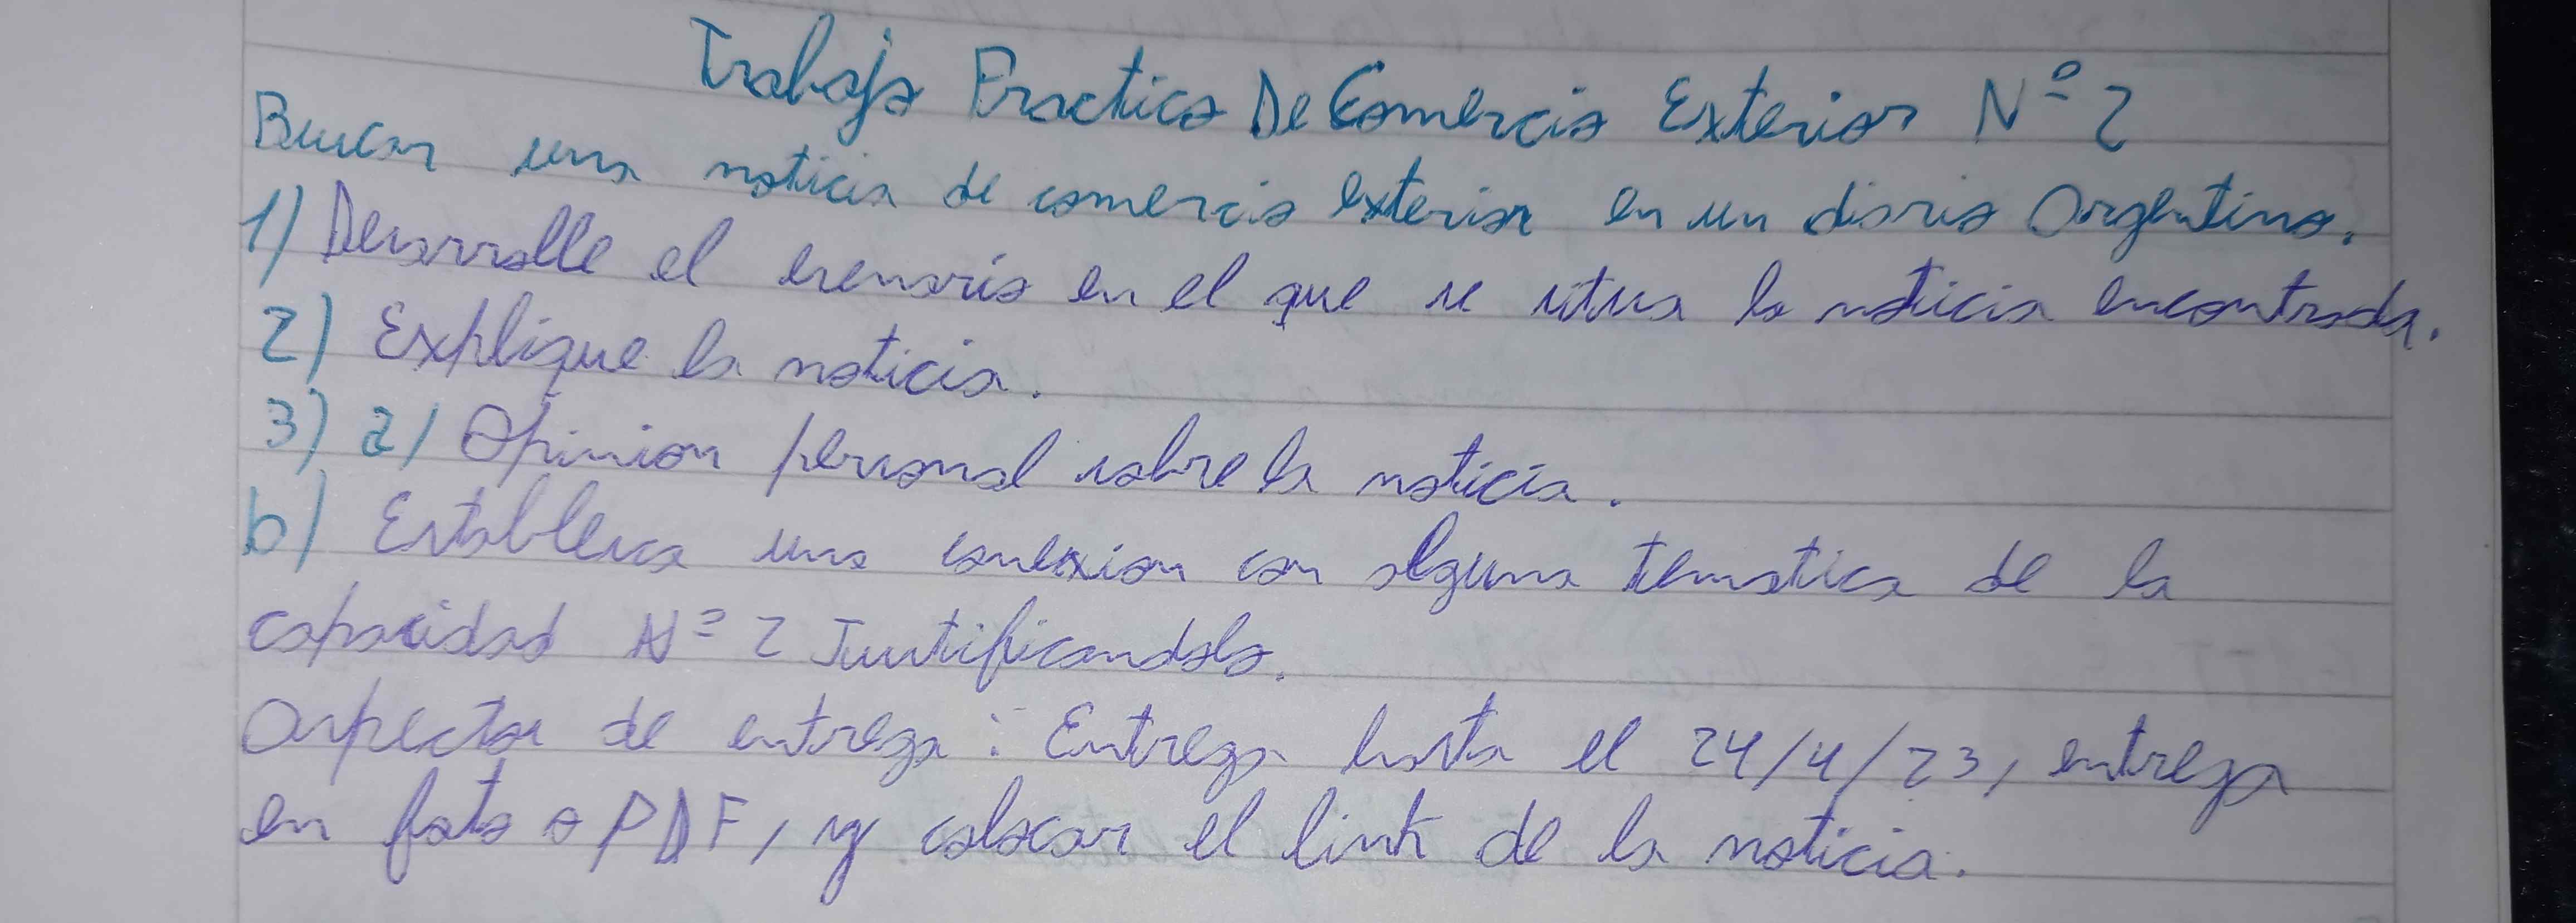 Trabajo Practico De Comercio Exterior Nº 2
Buscar una noticia de comercio exterior en un diario Argentino.
1) Desarrolle el escenario en el que se situa la noticia encontrada.
2) Explique la noticia.
3) a) Opinion personal sobre la noticia.
b) Establesca una conexion con alguna tematica de la
capacidad Nº 2 Justificandolo.
Aspectos de entrega: Entrega hasta el 24/4/23, entrega
en foto o PDF, y colocar el link de la noticia.